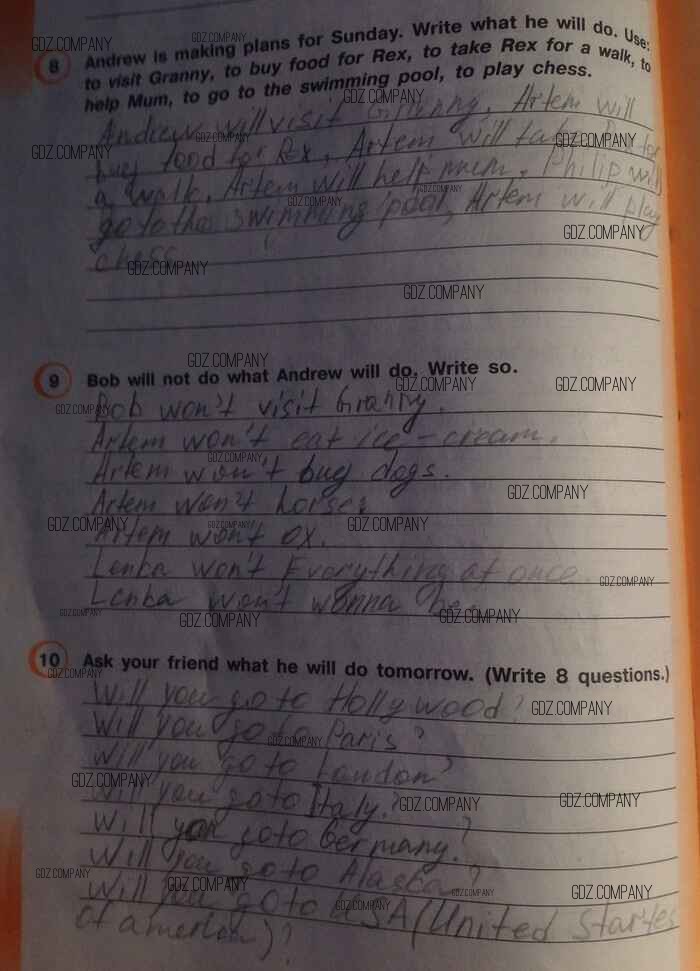 8 Andrew is making plans for Sunday. Write what he will do. Use:
to visit Granny, to buy food for Rex, to take Rex for a walk, to
help Mum, to go to the swimming pool, to play chess.
Andrew will visit Granny. Artem will
buy food for Rex. Artem will
a walk. Artem will help mum. Philip will
go to the swimming pool, Artem will play
chess
9 Bob will not do what Andrew will do. Write so.
Bob won't visit Granny.
Artem won't eat ice-cream.
Artem won't bug dogs.
Artem won't horses
Artem won't ox.
Lenba won't Everything at once
Lenba won't wanna
10 Ask your friend what he will do tomorrow. (Write 8 questions.)
Will you go to Hollywood?
Will you go to Paris?
Will you go to London?
Will you go to Italy?
Will you go to Germany?
Will you go to Alasca?
Will you go to USA (United Startes
of america)?
GDZ.COMPANY